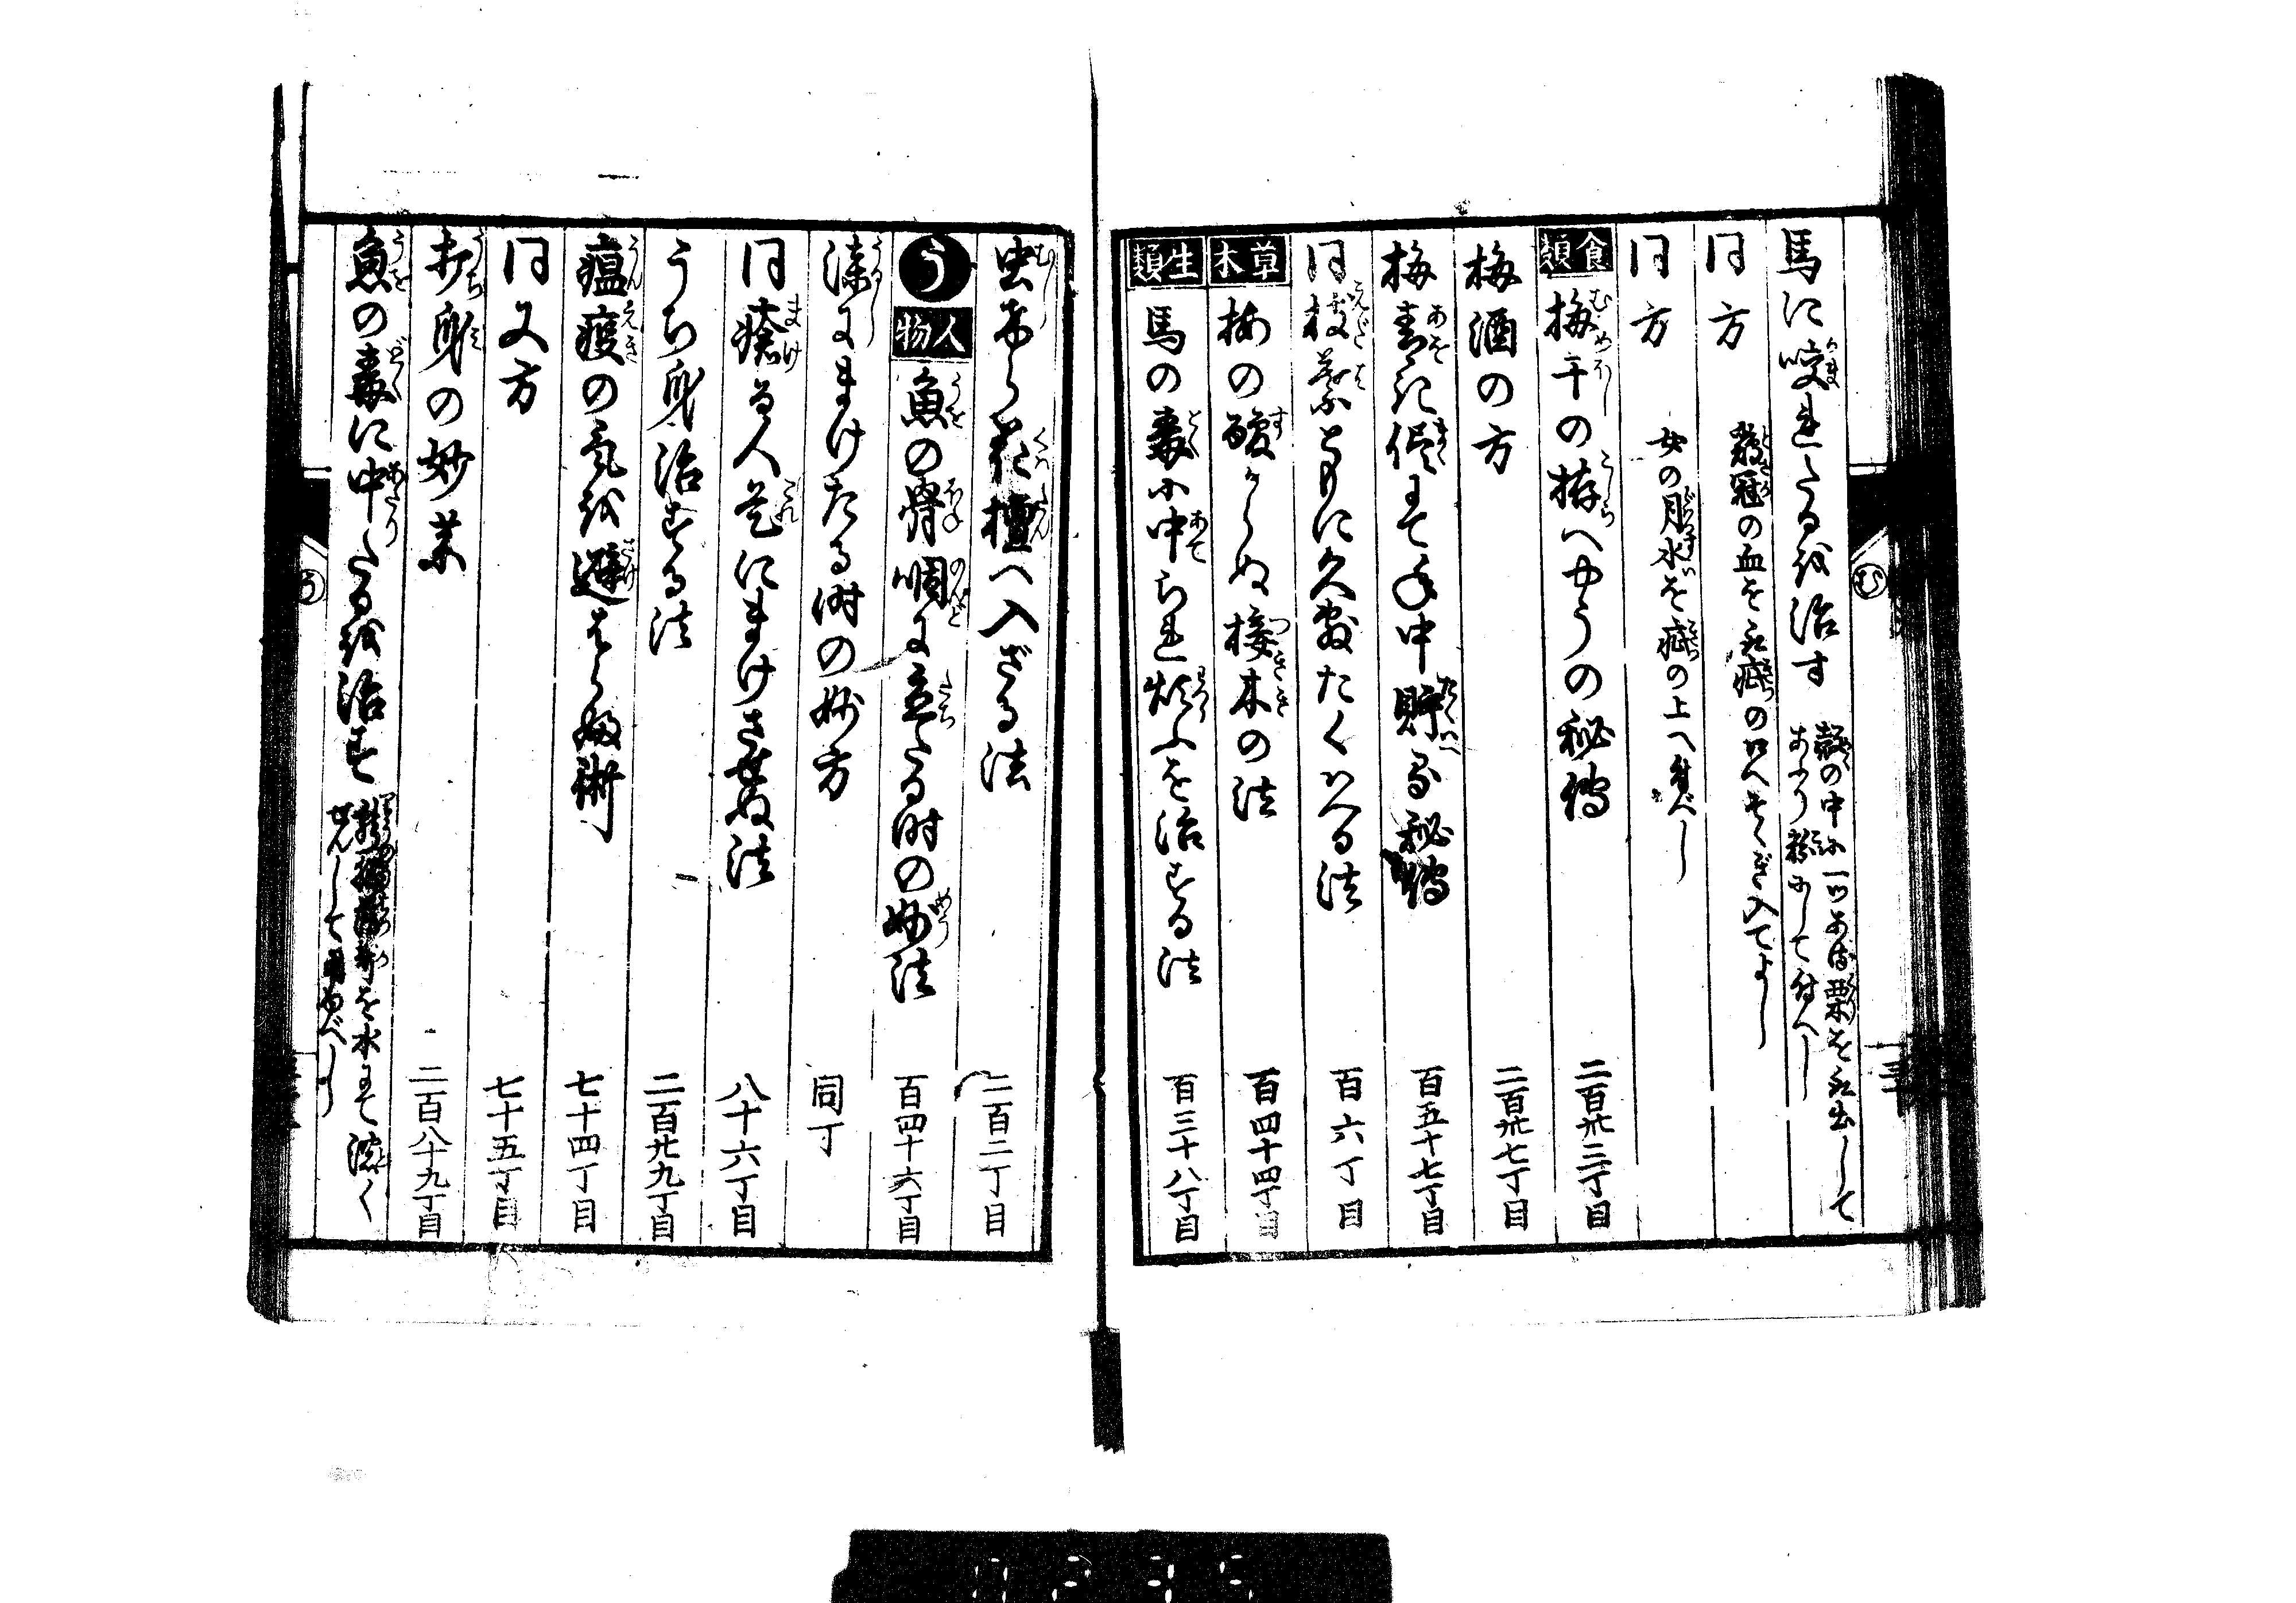 馬に咬れたるを治す 毬の中に一ツある栗を取出して
あぶり粉にして付べし
同方 雞冠の血を取疵の口へそゝぎ入てよし
同方 女の月水を疵の上へ付べし
食類 梅干の拵へやうの秘傳 二百卅三丁目
梅酒の方 二百卅七丁目
梅青き侭にて年中貯る秘傳 百五十七丁目
同枝葉ともに久敷たくはへる法 百六丁目
草木 梅の酸からぬ接木の法 百四十四丁目
生類 馬の毒に中られ煩ふを治する法 百三十八丁目
虫あら花壇へ入ざる法 二百二丁目
う 人物 魚の骨咽に立たる時の妙法 百四十六丁目
漆にまけたる時の妙方 同丁
同瘡る人是にまけさせぬ法 八十六丁目
うち身治する法 二百卅九丁目
瘟疫の氣を避る妙術 七十四丁目
同又方 七十五丁目
打身の妙薬 二百八十九丁目
魚の毒に中りたるを治す を水にて濃く
せんして用ゆべし
む
う